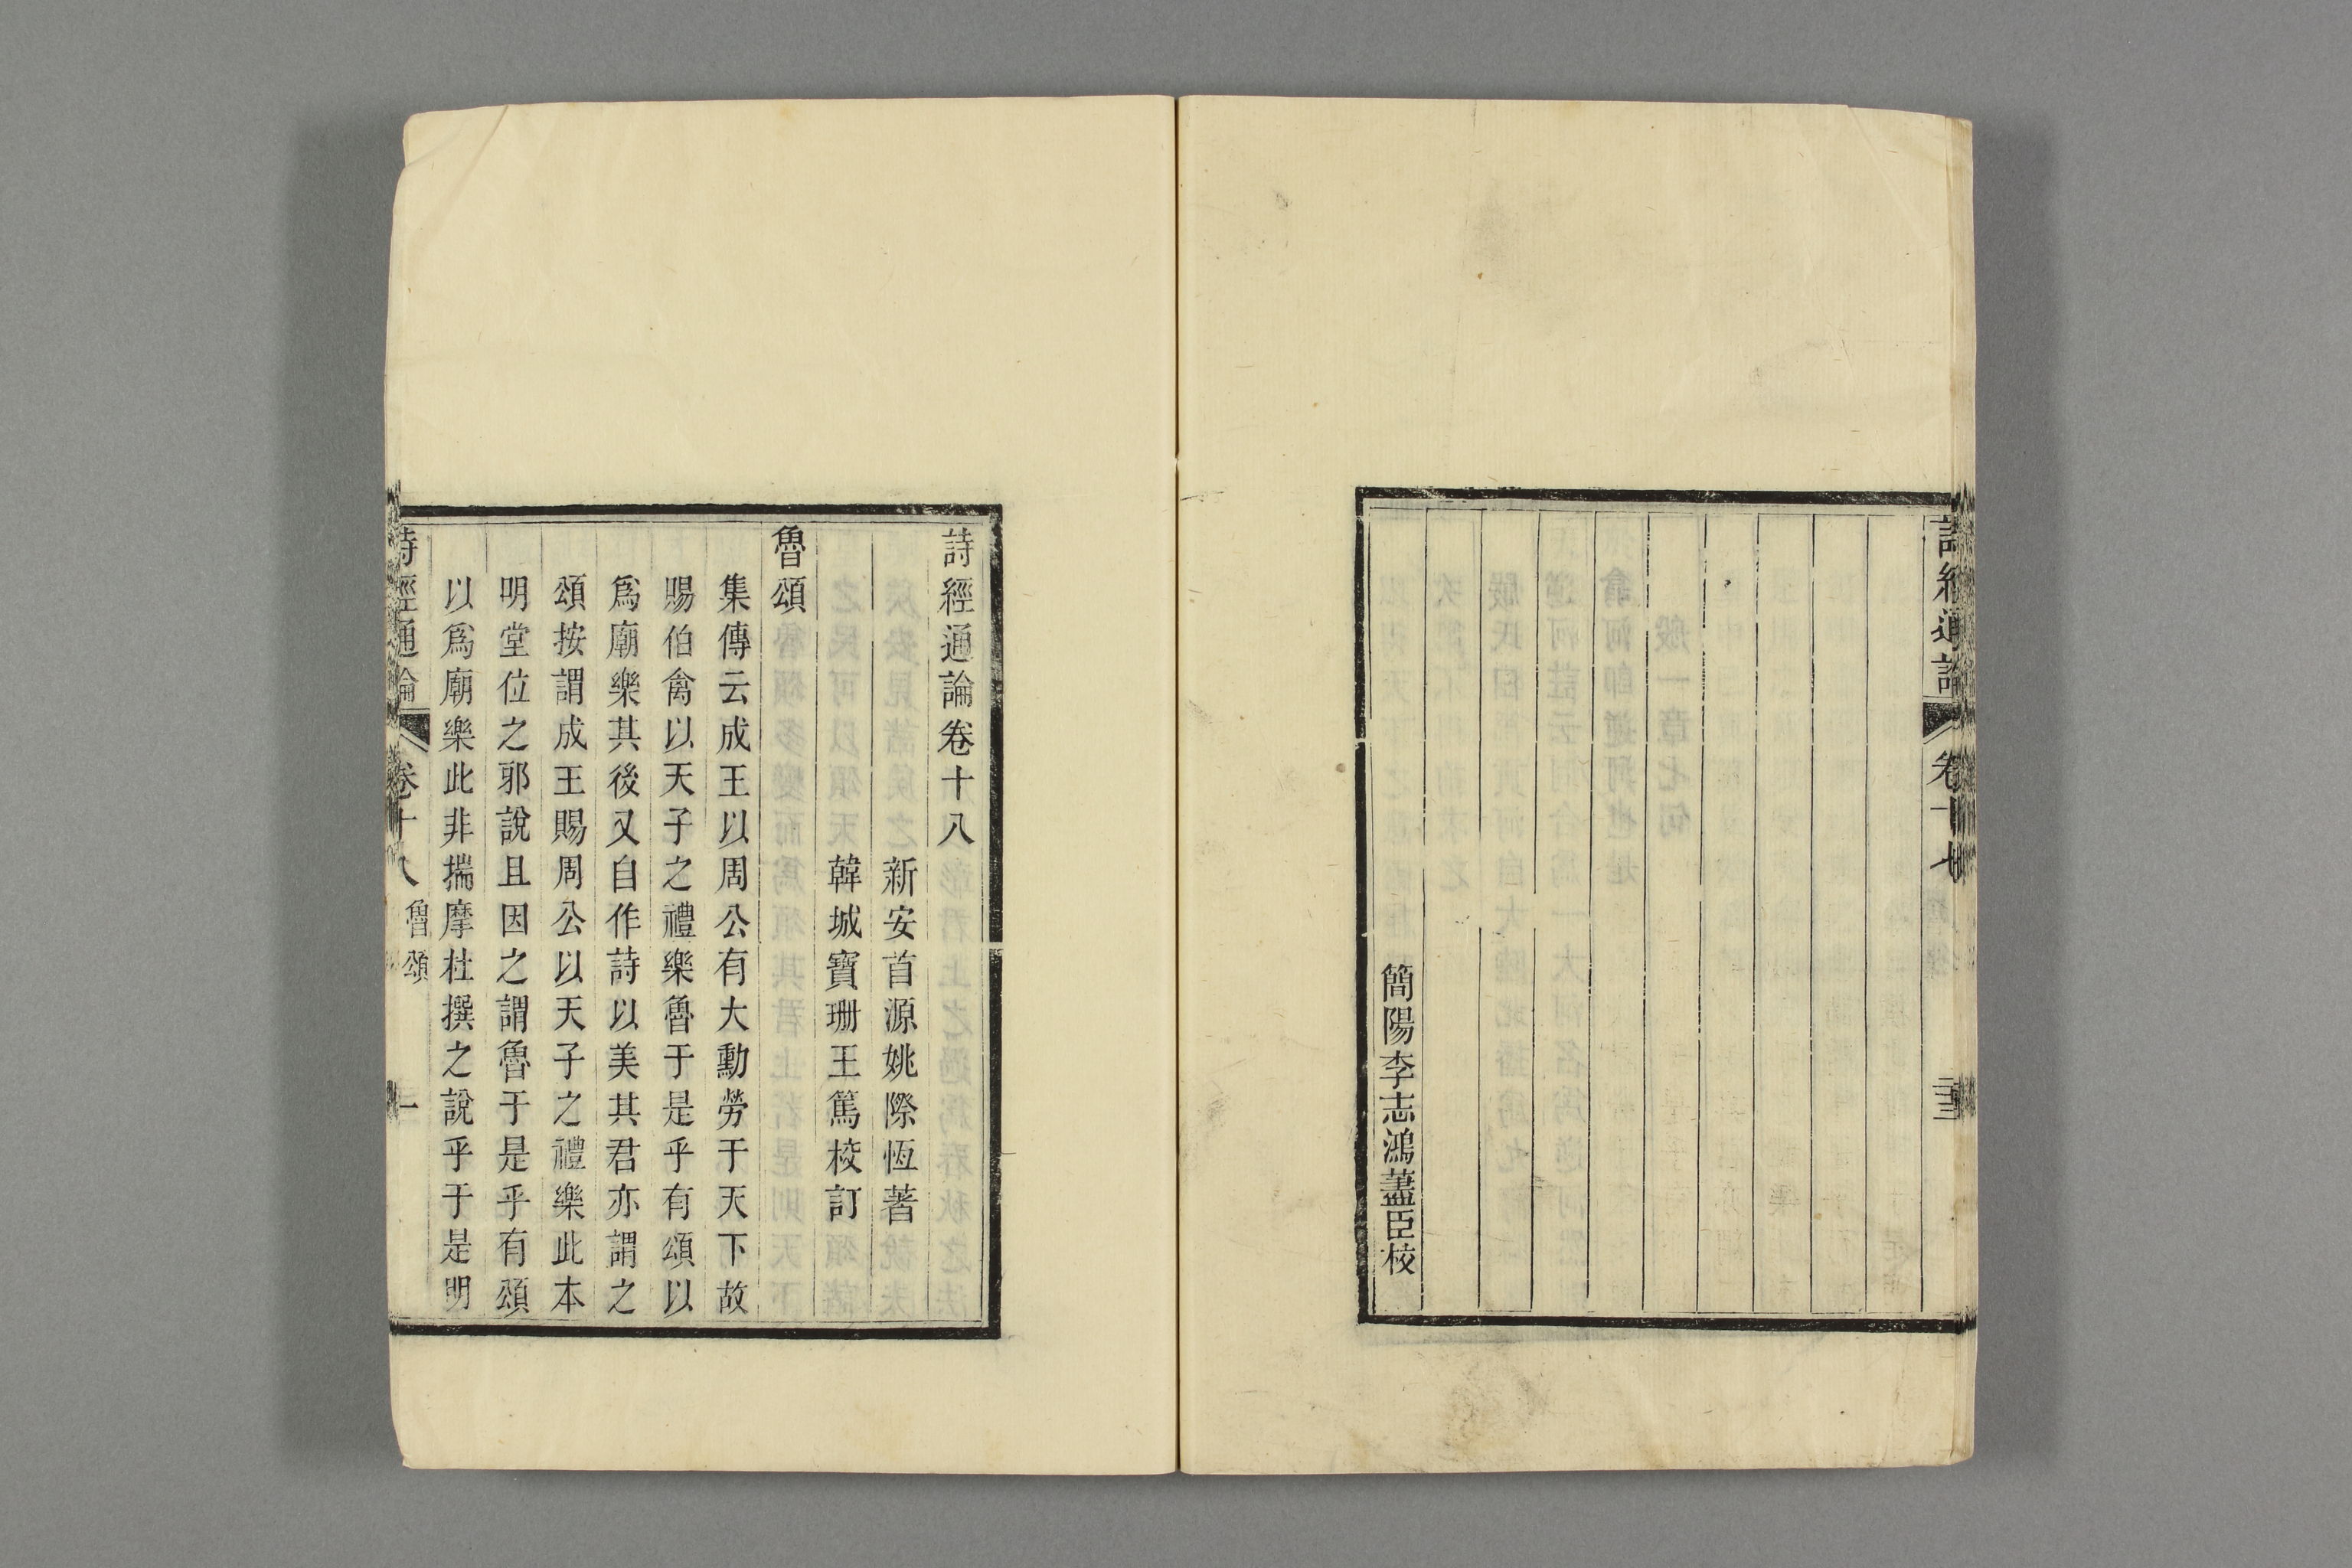 詩經通論 卷十七 三十三
簡陽李志鴻藎臣校
詩經通論卷十八
新安首源姚際恆著
韓城寶珊王篤校訂
魯頌
集傳云成王以周公有大勳勞于天下故
賜伯禽以天子之禮樂魯于是乎有頌以
爲廟樂其後又自作詩以美其君亦謂之
頌按謂成王賜周公以天子之禮樂此本
明堂位之邪說且因之謂魯于是乎有頌
以爲廟樂此非揣摩杜撰之說乎于是明
詩經通論 卷十八 魯頌 一